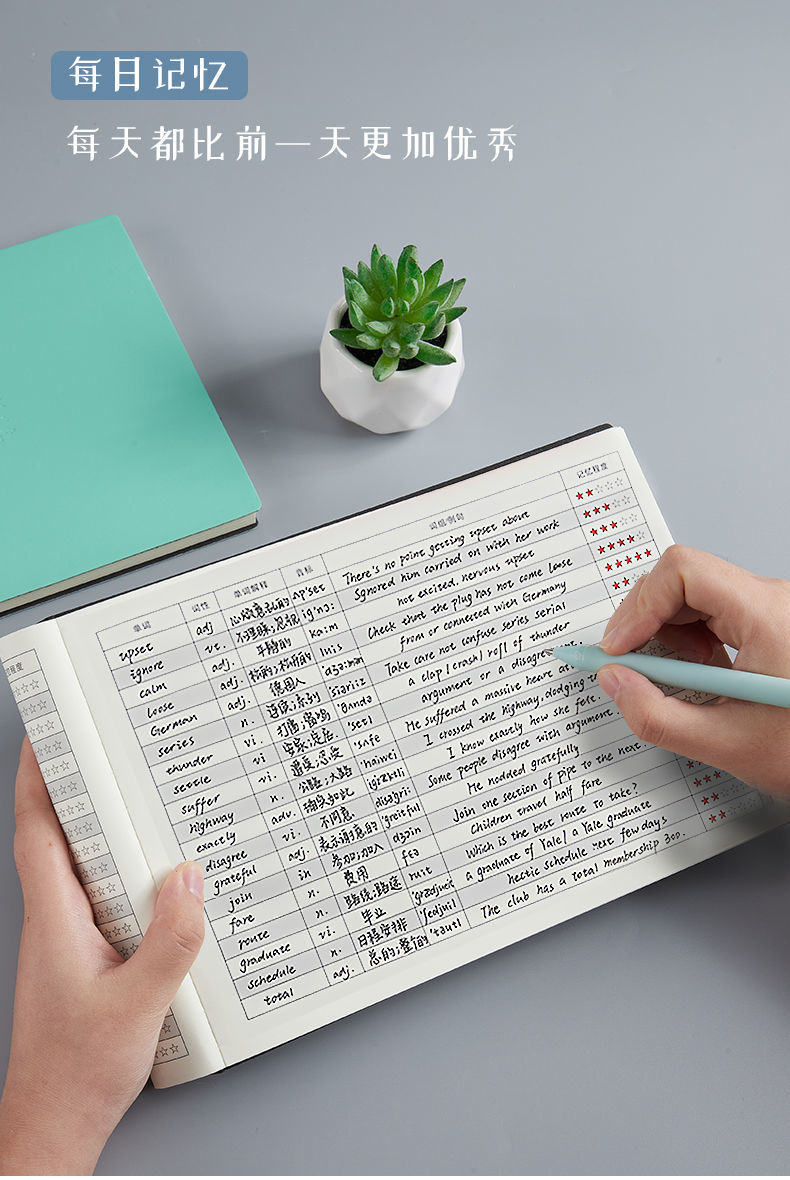 每日记忆
每天都比前一天更加优秀
单词 词性 单词解释 音标 词组/例句 记忆程度
upset adj 心烦意乱的 ʌp'set There's no point getting upset about
ignore vt. 不理睬;忽视 ig'nɔ: Ignored him carried on with her work
calm adj. 平静的 ka:m not excited, nervous upset
loose adj. 松的;松角的 lu:s Check that the plug has not come loose
German adj. 德国人 'dʒə:mən from or connected with Germany
series n. 连续;系列 'siəri:z Take care not confuse series serial
thunder vi. 打雷;雷鸣 'θʌndə a clap/crash/roll of thunder
settle vi. 安家;定居 'setl argument or a disagree
suffer vi. 遭受;忍受 'sʌfə He suffered a massive heart at
highway n. 公路;大路 'haiwei I crossed the highway, dodging t
exactly adv. 确切如此 ig'zæktli I know exactly how she felt
disagree vi. 不同意 disəgri: Some people disagree with argument
grateful adj. 表示谢意的 'greitful He nodded gratefully
join in 参加;加入 dʒɔin Join one section of pipe to the next.
fare n. 费用 fɛə Children travel half fare
route n. 路线;路途 ru:t Which is the best route to take?
graduate vi. 毕业 grædjueit a graduate of Yale/a Yale graduate
schedule n. 日程安排 'ʃedju:l hectic schedule next few days
total adj. 总的;整个的 'təutl The club has a total membership 300.